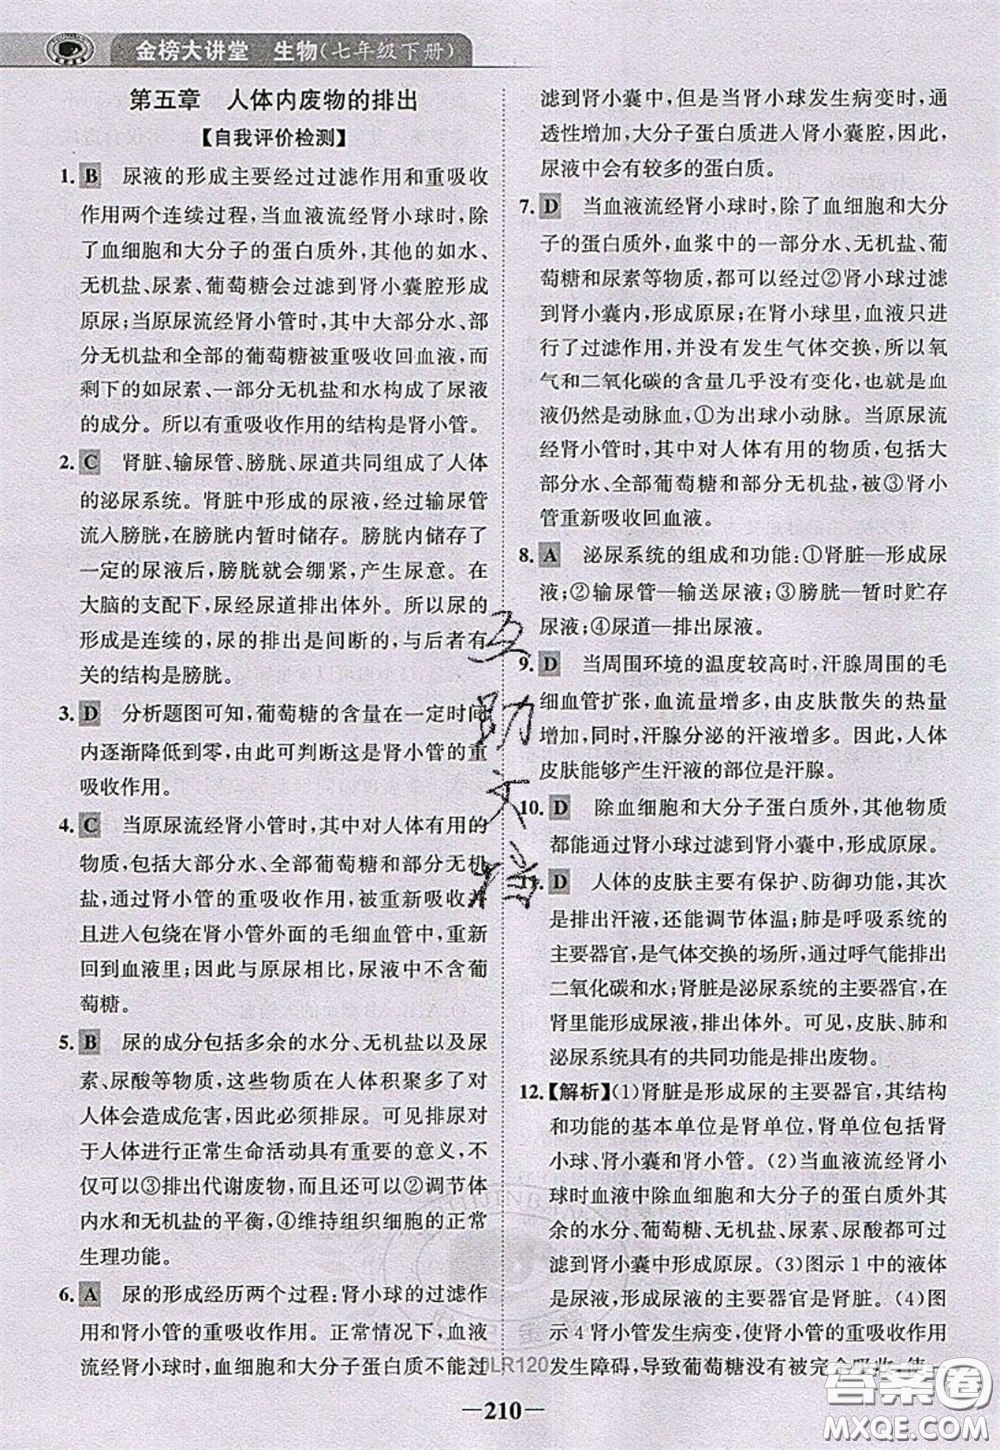 金榜大讲堂 生物(七年级下册)
第五章 人体内废物的排出
【自我评价检测】
1. B 尿液的形成主要经过过滤作用和重吸收
作用两个连续过程,当血液流经肾小球时,除
了血细胞和大分子的蛋白质外,其他的如水、
无机盐、尿素、葡萄糖会过滤到肾小囊腔形成
原尿;当原尿流经肾小管时,其中大部分水、部
分无机盐和全部的葡萄糖被重吸收回血液,而
剩下的如尿素、一部分无机盐和水构成了尿液
的成分。所以有重吸收作用的结构是肾小管。
2. C 肾脏、输尿管、膀胱、尿道共同组成了人体
的泌尿系统。肾脏中形成的尿液,经过输尿管
流入膀胱,在膀胱内暂时储存。膀胱内储存了
一定的尿液后,膀胱就会绷紧,产生尿意。在
大脑的支配下,尿经尿道排出体外。所以尿的
形成是连续的,尿的排出是间断的,与后者有
关的结构是膀胱。
3. D 分析题图可知,葡萄糖的含量在一定时间
内逐渐降低到零,由此可判断这是肾小管的重
吸收作用。
4. C 当原尿流经肾小管时,其中对人体有用的
物质,包括大部分水、全部葡萄糖和部分无机
盐,通过肾小管的重吸收作用,被重新吸收,并
且进入包绕在肾小管外面的毛细血管中,重新
回到血液里;因此,与原尿相比,尿液中不含葡
萄糖。
5. B 尿的成分包括多余的水分、无机盐以及尿
素、尿酸等物质,这些物质在人体积聚多了对
人体会造成危害,因此必须排尿。可见排尿对
于人体进行正常生命活动具有重要的意义,不
仅可以③排出代谢废物,而且还可以②调节体
内水和无机盐的平衡,④维持组织细胞的正常
生理功能。
6. A 尿的形成经历两个过程:肾小球的过滤作
用和肾小管的重吸收作用。正常情况下,血液
流经肾小球时,血细胞和大分子蛋白质不能过
滤到肾小囊中,但是当肾小球发生病变时,通
透性增加,大分子蛋白质进入肾小囊腔,因此,
尿液中会有较多的蛋白质。
7. D 当血液流经肾小球时,除了血细胞和大分
子蛋白质外,血浆中的一部分水、无机盐、葡
萄糖和尿素等物质,都可以经过②肾小球过滤
到肾小囊内,形成原尿;在肾小球里,血液只进
行了过滤作用,并没有发生气体交换,所以氧
气和二氧化碳的含量几乎没有变化,也就是血
液仍然是动脉血,①为出球小动脉。当原尿流
经肾小管时,其中对人体有用的物质,包括大
部分水、全部葡萄糖和部分无机盐,被③肾小
管重新吸收回血液。
8. A 泌尿系统的组成和功能:①肾脏—形成尿
液;②输尿管—输送尿液;③膀胱—暂时贮存
尿液;④尿道—排出尿液。
9. D 当周围环境的温度较高时,汗腺周围的毛
细血管扩张,血流量增多,由皮肤散失的热量
增加;同时,汗腺分泌的汗液增多。因此,人体
皮肤能够产生汗液的部位是汗腺。
10. D 除血细胞和大分子蛋白质外,其他物质
都能通过肾小球过滤到肾小囊中,形成原尿。
D 人体的皮肤主要有保护、防御功能,其次
是排出汗液,还能调节体温;肺是呼吸系统的
主要器官,是气体交换的场所,通过呼气能排出
二氧化碳和水;肾脏是泌尿系统的主要器官,在
肾里能形成尿液,排出体外。可见,皮肤、肺和
泌尿系统具有的共同功能是排出废物。
12.【解析】(1)肾脏是形成尿的主要器官,其结构
和功能的基本单位是肾单位,肾单位包括肾
小球、肾小囊和肾小管。(2)当血液流经肾小
球时血液中除血细胞和大分子的蛋白质外其
余的水分、葡萄糖、无机盐、尿素、尿酸都可过
滤到肾小囊中形成原尿。(3)图示1中的液体
是尿液,形成尿液的主要器官是肾脏。(4)图
示4肾小管发生病变,使肾小管的重吸收作用
发生障碍,导致葡萄糖没有被完全吸收,使
互
助
文
档
20LR120
—210—
答案圈
MXQE.COM